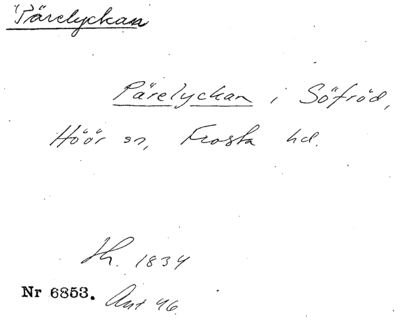 Pärelyckan
Pärelyckan i Söfröd,
Höör sn, Frosta hd.
Lh. 1834
Nr 6853. Ant 46.